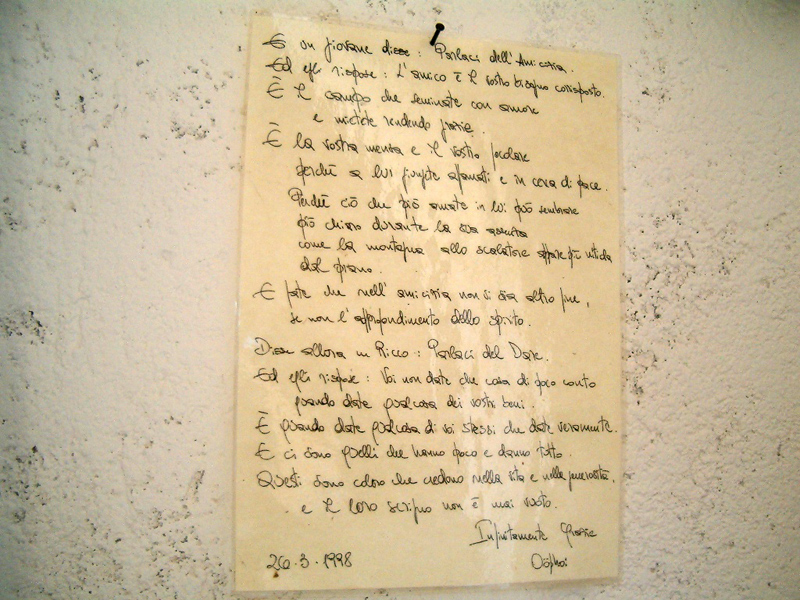 E un giovane disse: Parlaci dell'Amicizia.
Ed egli rispose: L'amico è il vostro bisogno corrisposto.
È il campo che seminate con amore
e mietete rendendo grazie.
È la vostra mensa e il vostro focolare
perché a lui giungete affamati e in cerca di pace.
Perché ciò che più amate in lui può sembrare
più chiaro durante la sua assenza
come la montagna allo scalatore appare più nitida
dal piano.
E fate che nell'amicizia non vi sia altro fine,
se non l'approfondimento dello spirito.
Disse allora un Ricco: Parlaci del Dare.
Ed egli rispose: Voi non date che cosa di poco conto
quando date qualcosa dei vostri beni.
È quando date qualcosa di voi stessi che date veramente.
E ci sono quelli che hanno poco e danno tutto.
Questi sono coloro che credono nella vita e nella generosità,
e il loro scrigno non è mai vuoto.
Infinitamente Grazie
26.3.1998